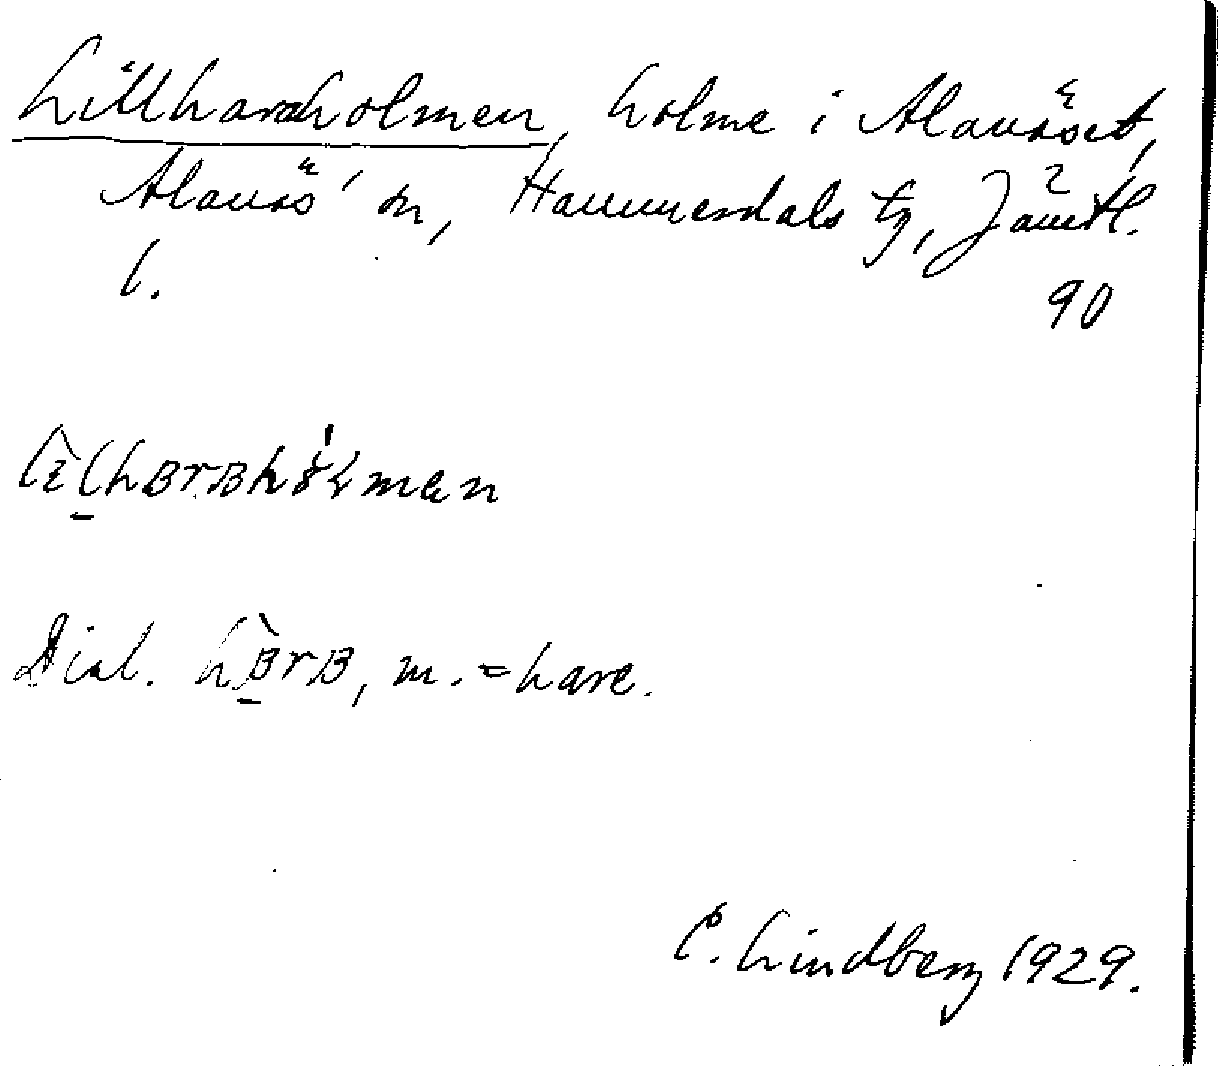 Lillharaholmen, holme i Alanäset,
Alanäs' sn, Hammerdals tg, Jämtl.
l.
90
Dial. hʙrʙ, m. = hare.
C. Lindberg 1929.